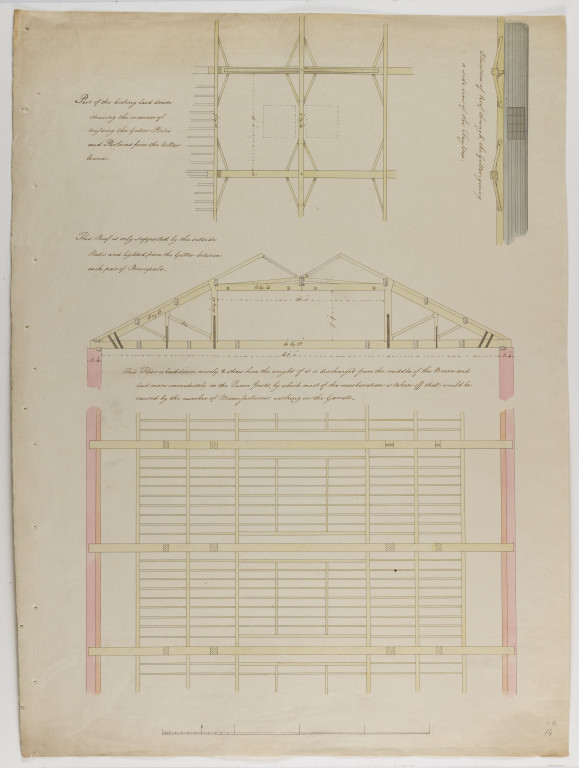 Part of the Cieling laid down
shewing the manner of
trussing the Gutter Plates
and Purloins from the better
beams.
Elevations of Roof through the Gutter giving
a side view of the Skylites.
This Roof is only supported by the outside
Walls and lighted from the Gutter between
each pair of Principals.
8 by 12
26.. 0
14 by 12
65.. 0
This Floor is laid down merely to shew how the weight of it is discharged from the middle of the Beam and
laid more immediately on the Queen Posts, by which most of the reverberation is taken off that would be
caused by the number of Manufacturers working in the Garrets.
14